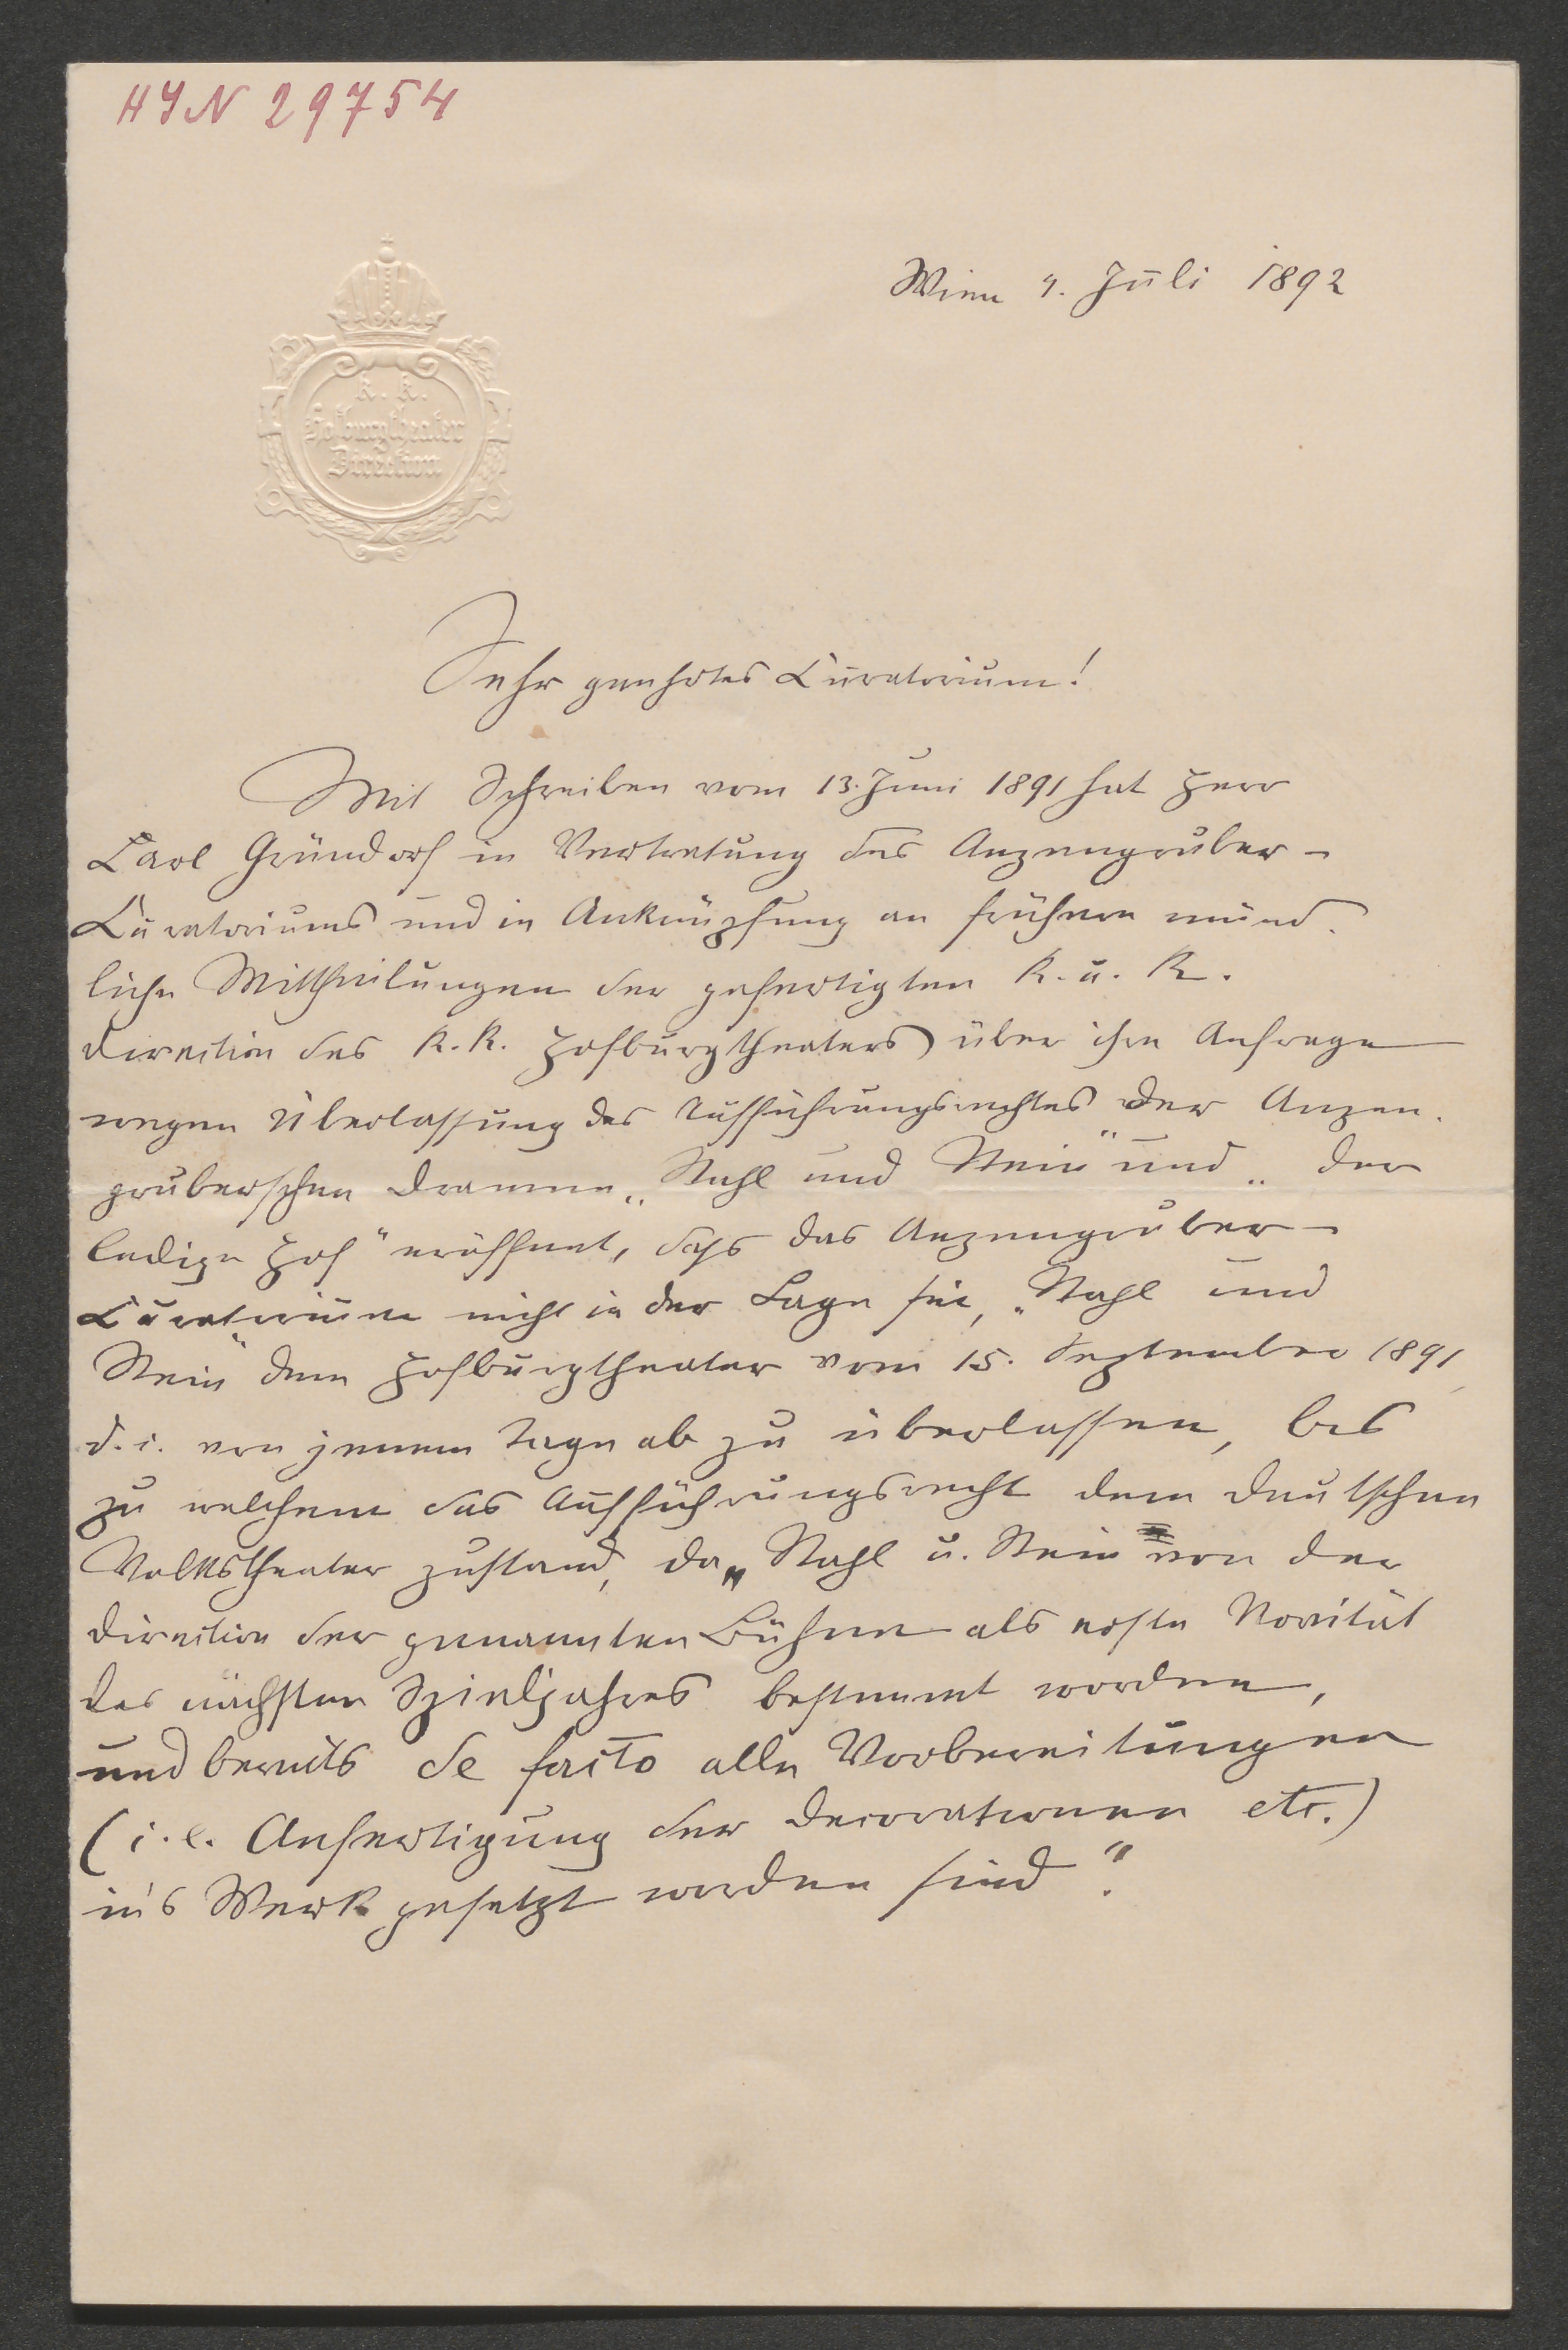 HIN 29754
Wien 9. Juli 1892
k. k.
Hofburgtheater
Direction
Sehr geehrtes Curatorium!
Mit Schreiben vom 13. Juni 1891 hat Herr
Carl Gründorf in Vertretung des Anzengruber-
Curatoriums und in Anknüpfung an frühere münd-
liche Mittheilungen der gefertigten k. u. k.
Direction des k. k. Hofburgtheaters über ihre Anfrage
wegen Überlassung des Aufführungsrechtes der Anzen-
gruberschen Dramen „Stahl und Stein" und „der
ledige Hof" eröffnet, dass das Anzengruber-
Curatorium nicht in der Lage sei, „Stahl und
Stein" dem Hofburgtheater vom 15. September 1891,
d. i. von jenem Tage ab zu überlassen, bis
zu welchem das Aufführungsrecht dem deutschen
Volkstheater zustand, da „Stahl u. Stein von der
Direction der genannten Bühne als erste Novität
des nächsten Spieljahres bestimmt worden,
und bereits de facto alle Vorbereitungen
(i. e. Anfertigung der Decorationen etc.)
in's Werk gesetzt worden sind".